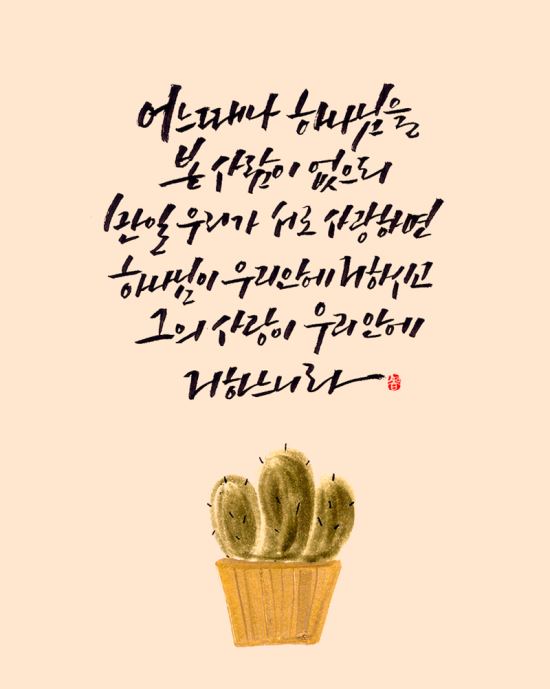 어느때나 하나님을
본 사람이 없으되
만일 우리가 서로 사랑하면
하나님이 우리안에 거하시고
그의 사랑이 우리안에
거하느니라